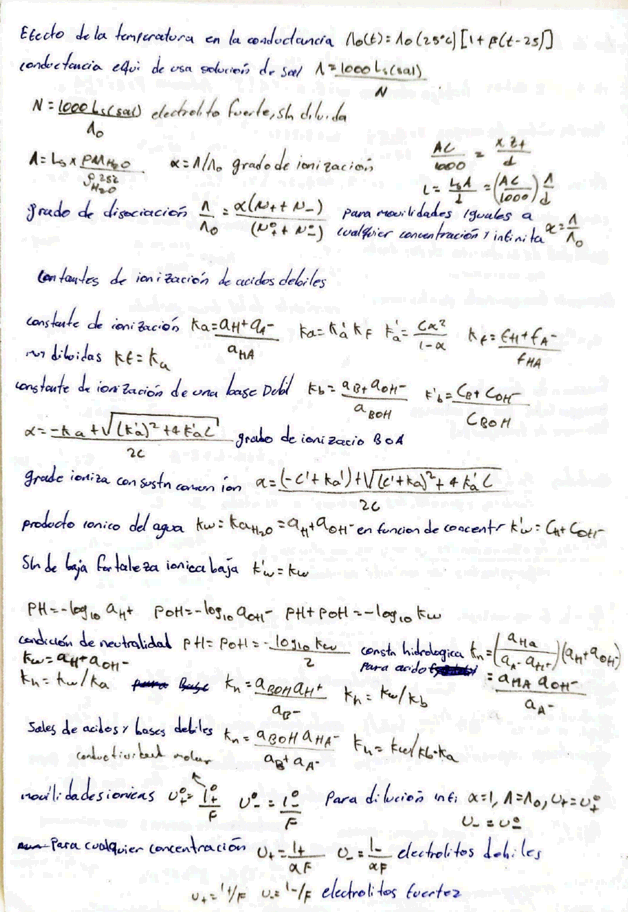 Efecto de la temperatura en la conductancia Λo(t)=Λo(25°C)[1+β(t-25)]
conductancia equi de una solución de sal Λ=1000 Ls(sal)/N
N=1000 Ls(sal)/Λo electrolito fuerte, sln diluida
Λ=Ls x PM H2O/ρ 25° H2O α=Λ/Λo grado de ionización AC/1000 = x z+/d
L=LsA/d=(AC/1000)Λ/d
grado de disociación Λ/Λo=α(N+ + N-)/(N°+ + N°-) para movilidades iguales a cualquier concentración y infinita α=Λ/Λo
Contantes de ionización de acidos debiles
constante de ionización Ka=aH+aA-/aHA Ka=K'a Kf K'a=Cα²/1-α Kf=fH+fA-/fHA
diluidas Kf=Ka
constante de ionización de una base Debil Kb=aB+aOH-/aBOH K'b=CB+COH-/CBOH
α=-Ka+√(K'a)²+4K'aC/2C grado de ionizacio BOA
grado ioniza con sustn comun ión α=(-C'+Ka')+√(C'+Ka)²+4K'aC/2C
producto ionico del agua Kw=KaH2O=aH+aOH- en funcion de concentr K'w=CH+COH-
Sln de baja fortaleza ionica baja K'w=Kw
PH=-log10 aH+ POH=-log10 aOH- PH+POH=-log10 Kw
condición de neutralidad PH=POH=-log10 Kw/2 constn hidrologica para acido Kn=(aHA/aA- aH+)(aH+aOH-)
Kw=aH+aOH- =aHA aOH-/aA-
Kh=Kw/Ka Kh=aBOH aH+/aB- Kh=Kw/Kb
Sales de acidos y bases debiles Kn=aBOH aHA-/aB+aA- Kh=Kw/Kb·Ka
conductividad molar
movilidades ionicas U°+=l°+/F U°-=l°-/F Para dilución infi α=1, Λ=Λo, U+=U°+
U-=U°-
Para cualquier concentración U+=l+/αF U-=l-/αF electrolitos debiles
U+=l+/F U-=l-/F electrolitos fuertez